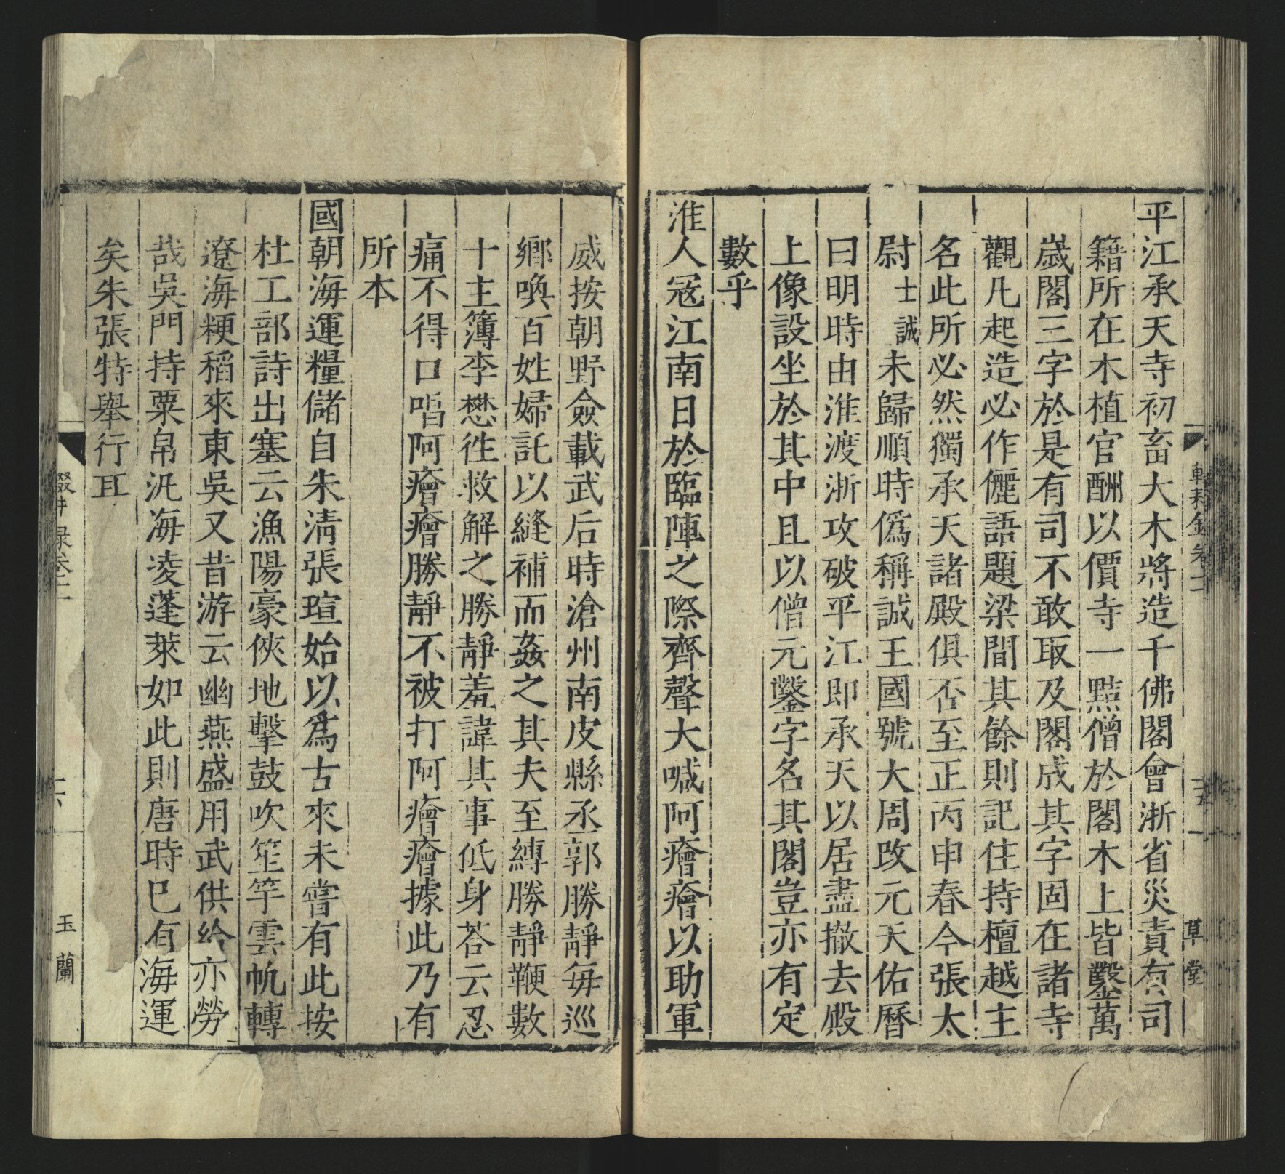 平江承天寺初畜大木將造千佛閣會浙省災責有司
籍所在木植官酬以價寺一黠僧於閣木上皆鑿萬
歲閣三字於是有司不敢取及閣成其字固在諸寺
觀凡起造必作儷語題梁間其餘則記住持檀越主
名此所必然獨承天諸殿俱否至正丙申春今張太
尉士誠未歸順時僞稱誠王國號大周改元天佑曆
曰明時由淮渡浙攻破平江即承天以居盡撤去殿
上像設坐於其中且以僧元鑿字名其閣豈亦有定
數乎
淮人寇江南日於臨陣之際齊聲大喊阿㿊㿊以助軍
威按朝野僉載武后時滄州南皮縣丞郭勝靜每巡
鄉喚百姓婦託以縫補而姦之其夫至縛勝靜鞭數
十主簿李懋徃救解之勝靜羞諱其事低身荅云忍
痛不得口唱阿㿊㿊勝靜不被打阿㿊㿊據此乃有
所本
國朝海運糧儲自朱清張瑄始以爲古來未嘗有此按
杜工部詩出塞云漁陽豪俠地擊鼓吹笙竽雲帆轉
遼海粳稻來東吳又昔游云幽燕盛用武供給亦勞
哉吳門持粟帛汎海凌蓬萊如此則唐時已有海運
矣朱張特舉行耳
玉蘭
草堂